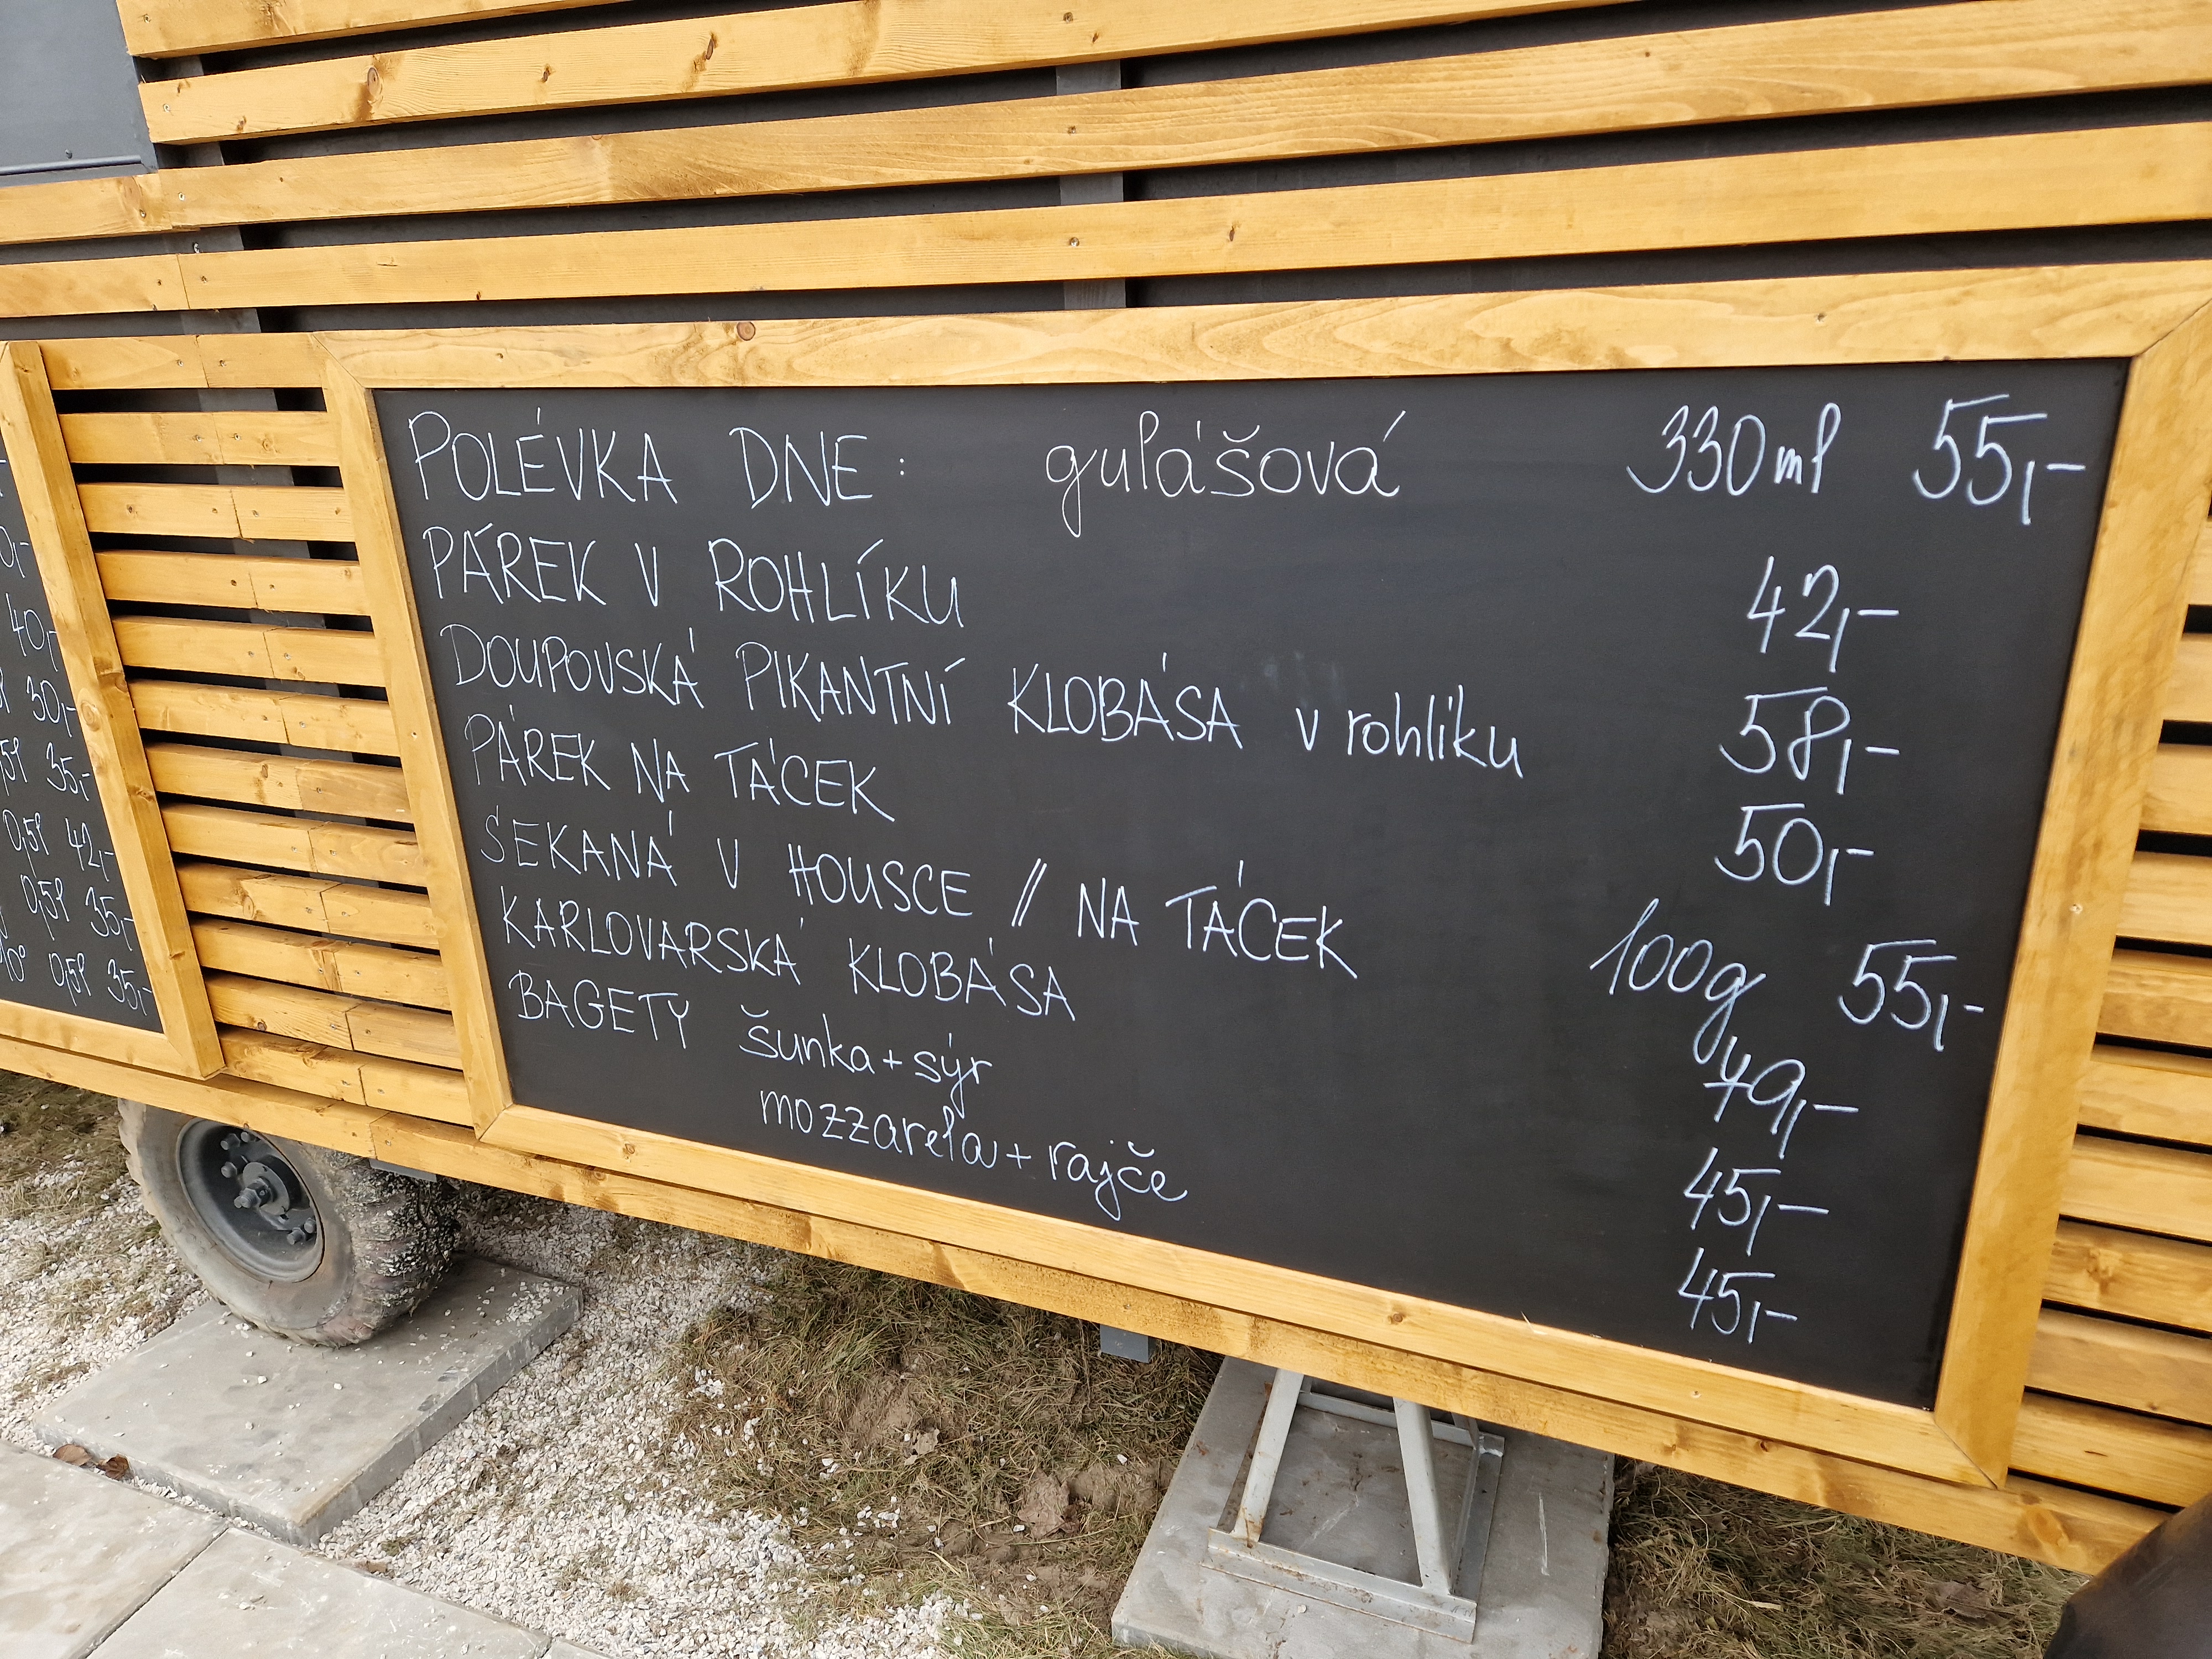 POLÉVKA DNE: gulášová 330ml 55,-
PÁREK V ROHLÍKU 42,-
DOUPOVSKÁ PIKANTNÍ KLOBÁSA v rohlíku 58,-
PÁREK NA TÁCEK 50,-
SEKANÁ V HOUSCE // NA TÁCEK 100g 55,-
KARLOVARSKÁ KLOBÁSA 79,-
BAGETY šunka+sýr 45,-
mozzarela+rajče 45,-
40,-
30,-
35,-
0,5l 42,-
0,5l 35,-
10° 0,5l 35,-